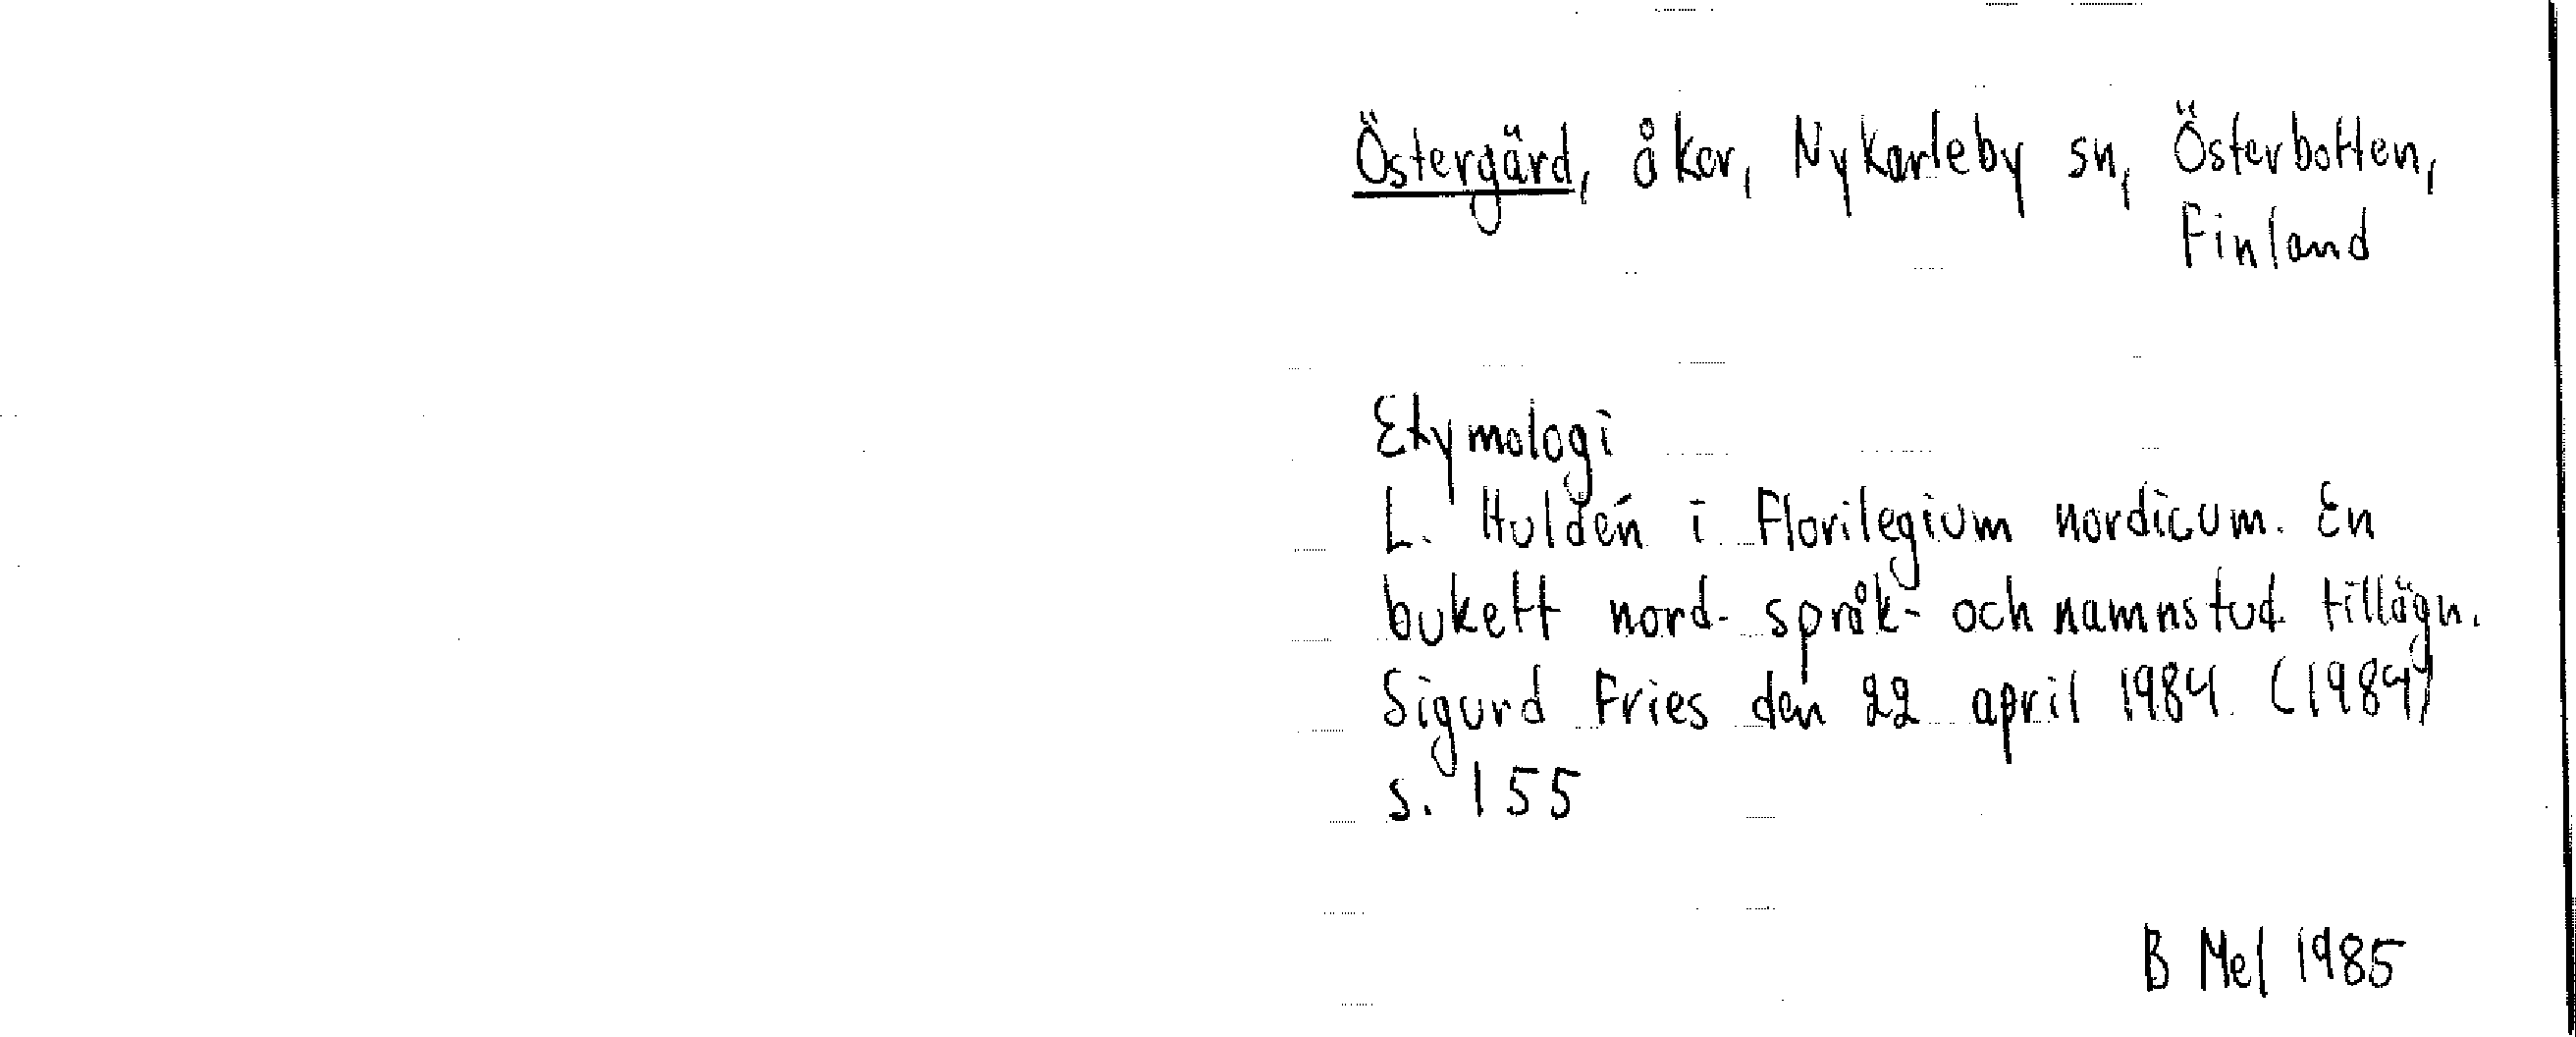 Östergärd, åker, Nykarleby sn, Österbotten,
Finland
Etymologi
L. Huldén i Florilegium nordicum. En
bukett nord. språk- och namnstud. tillägn.
Sigurd Fries den 22 april 1984 (1984)
s. 155
B Mel 1985